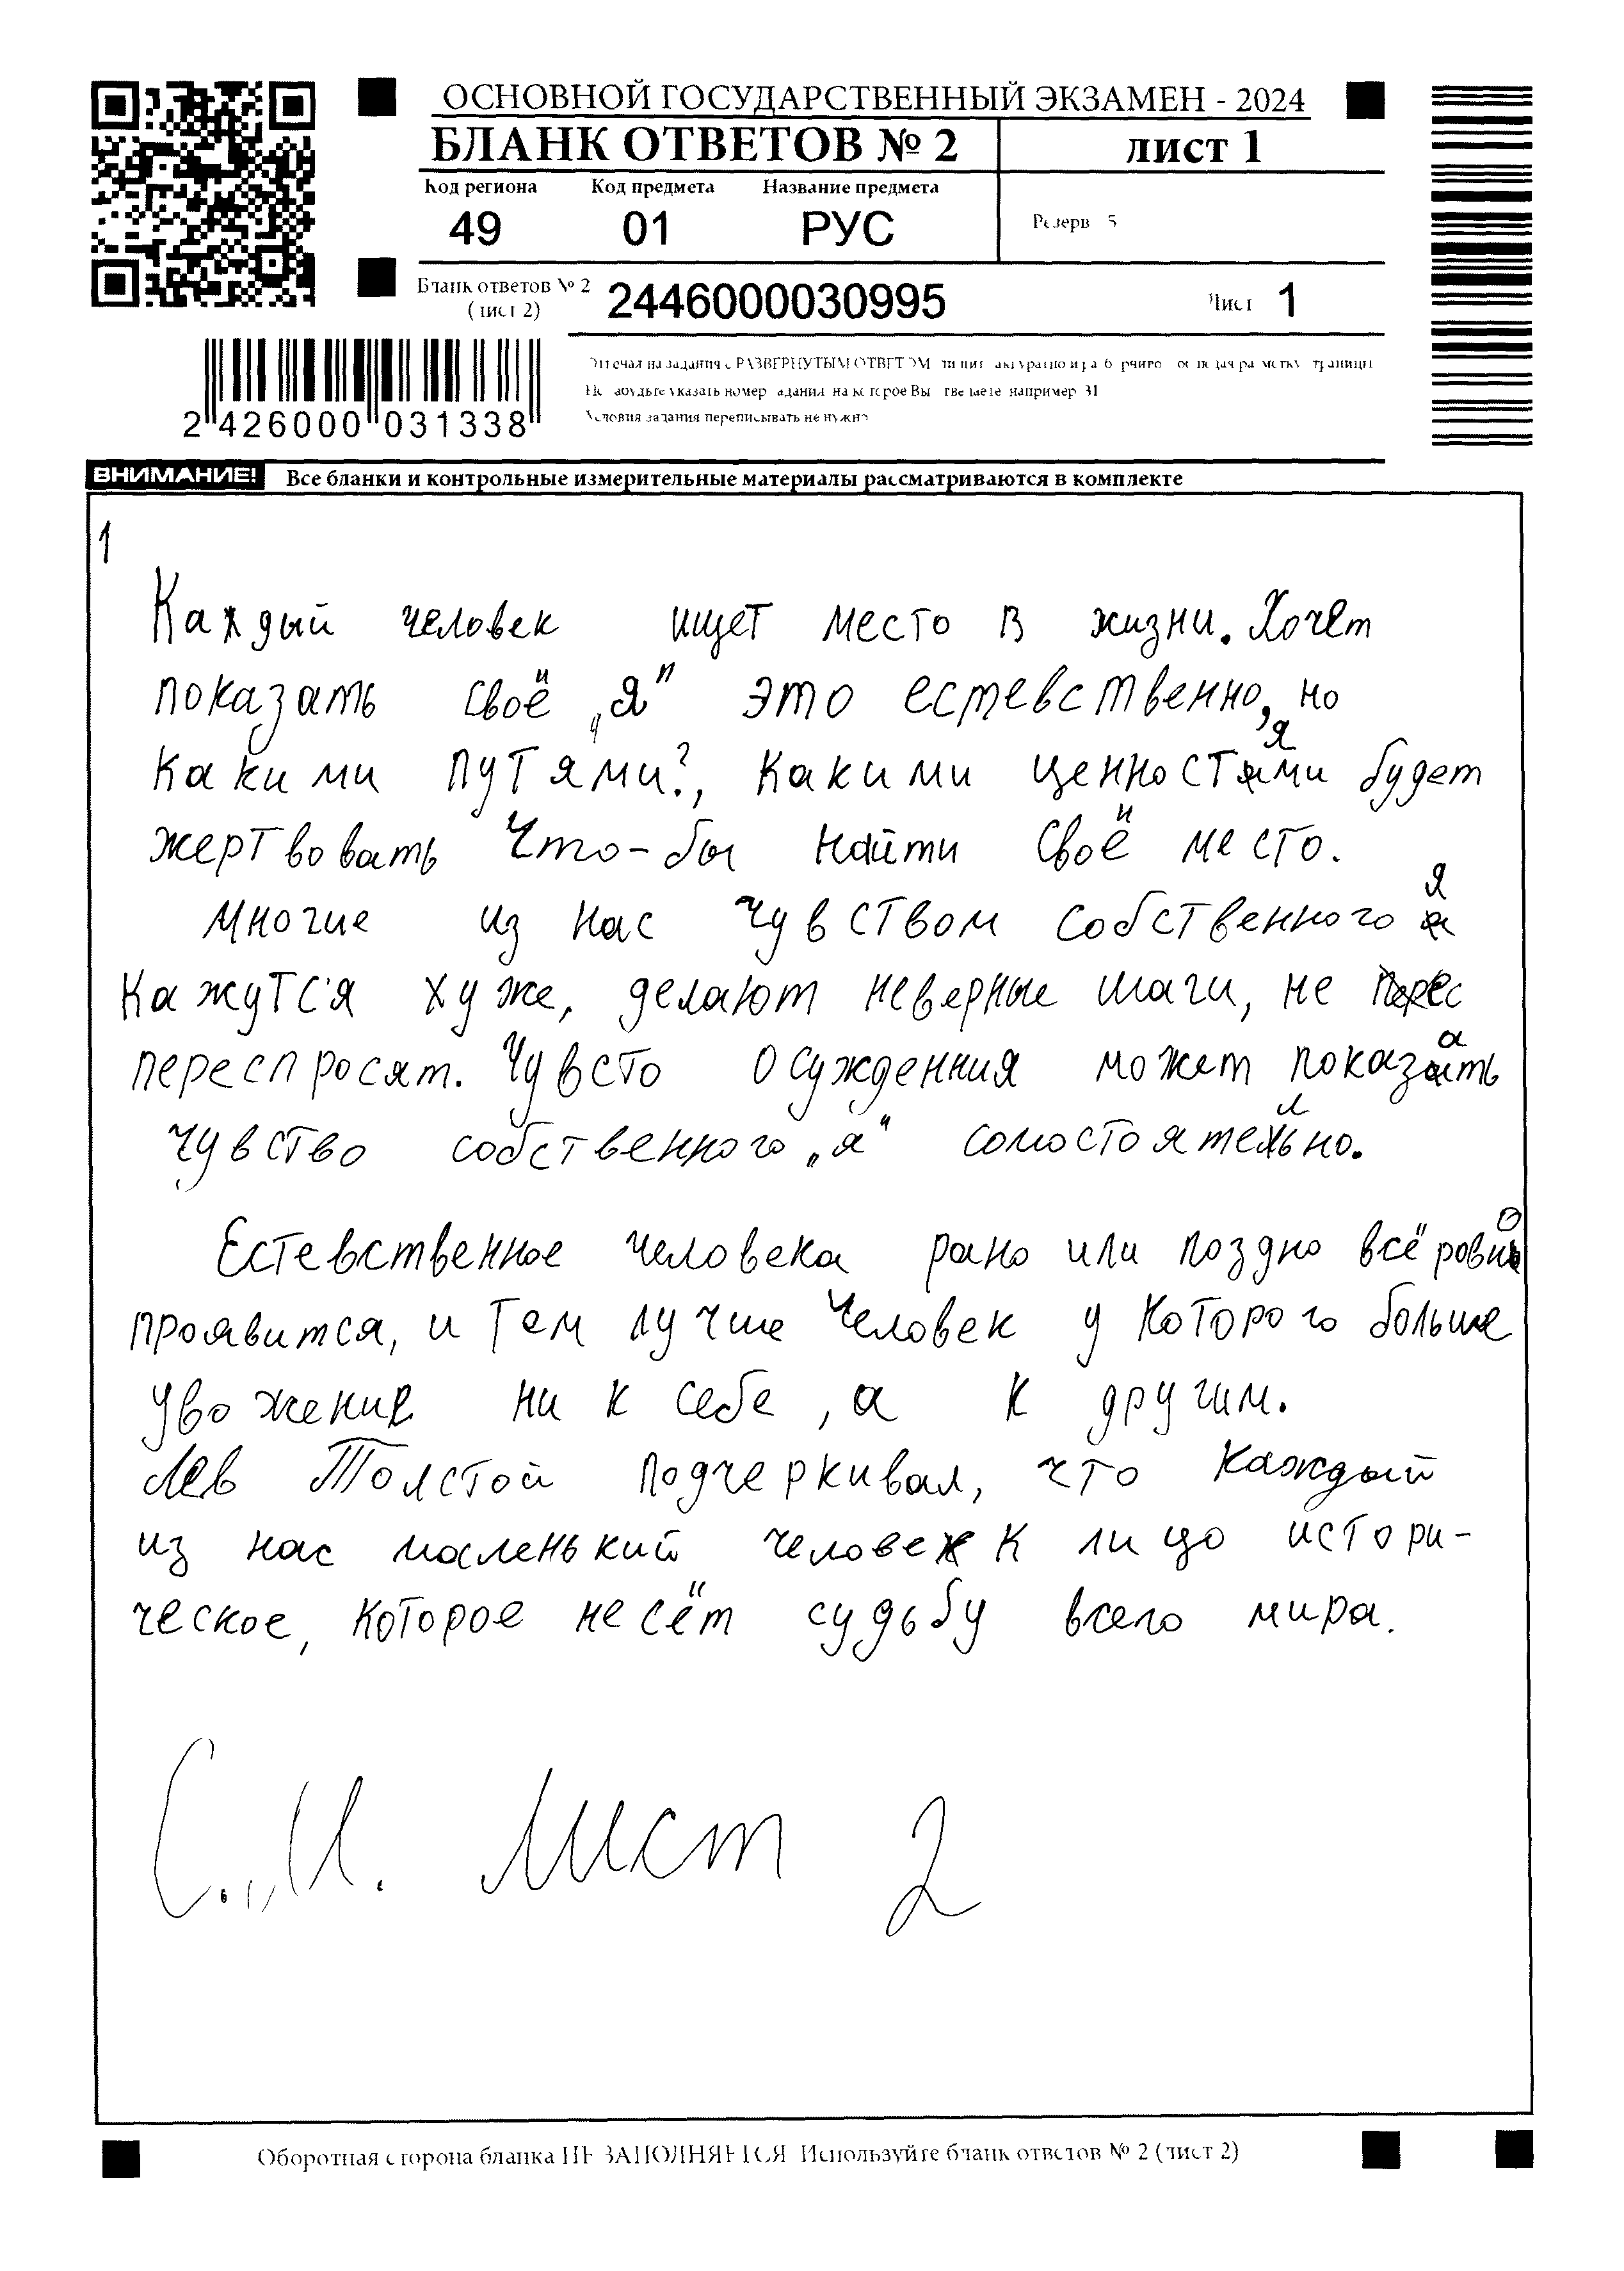 ОСНОВНОЙ ГОСУДАРСТВЕННЫЙ ЭКЗАМЕН - 2024
БЛАНК ОТВЕТОВ № 2
ЛИСТ 1
Код региона Код предмета Название предмета
49 01 РУС
Резерв 5
Бланк ответов № 2
(лист 2)
2446000030995
Лист 1
Отвечая на задания с РАЗВЕРНУТЫМ ОТВЕТОМ
Не забудьте указать номер задания на которое Вы отвечаете например 31
Условия задания переписывать не нужно
2 426000 031338
ВНИМАНИЕ! Все бланки и контрольные измерительные материалы рассматриваются в комплекте
1
Каждый человек ищет место в жизни. Хочет
показать своё „я" это естевственно, но
какими путями?, какими ценностями будет
жертвовать что-бы найти своё место.
Многие из нас чувством собственного я
кажутся хуже, делают неверные шаги, не
переспросят. Чувсто осужденния может показать
чувство собственного „я" сомостоятельно.
Естевственное человека рано или поздно всё ровно
проявится, и тем лучше человек у которого больше
увожение ни к себе, а к другим.
Лев Толстой подчеркивал, что каждый
из нас моленький человек лицо истори-
ческое, которое несёт судьбу всего мира.
См. Лист 2
Оборотная сторона бланка НЕ ЗАПОЛНЯЕТСЯ Используйте бланк ответов № 2 (лист 2)